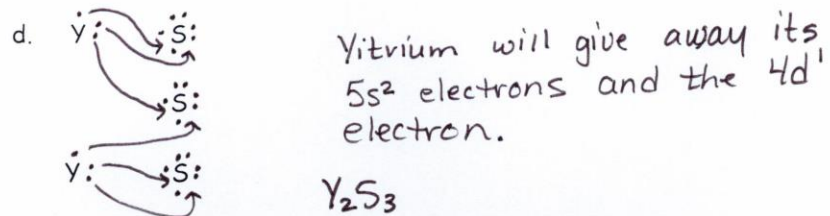 d. Y S
Yitrium will give away its
5s² electrons and the 4d¹
electron.
S
Y S
Y₂S₃